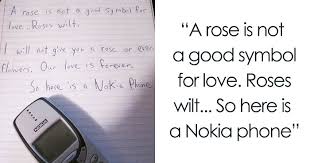 A rose is not a good symbol for
love. Roses wilt.
I will not give you a rose or even
flowers. Our love is forever.
So here is a Nokia Phone
NOKIA
“A rose is not
a good symbol
for love. Roses
wilt... So here is
a Nokia phone”